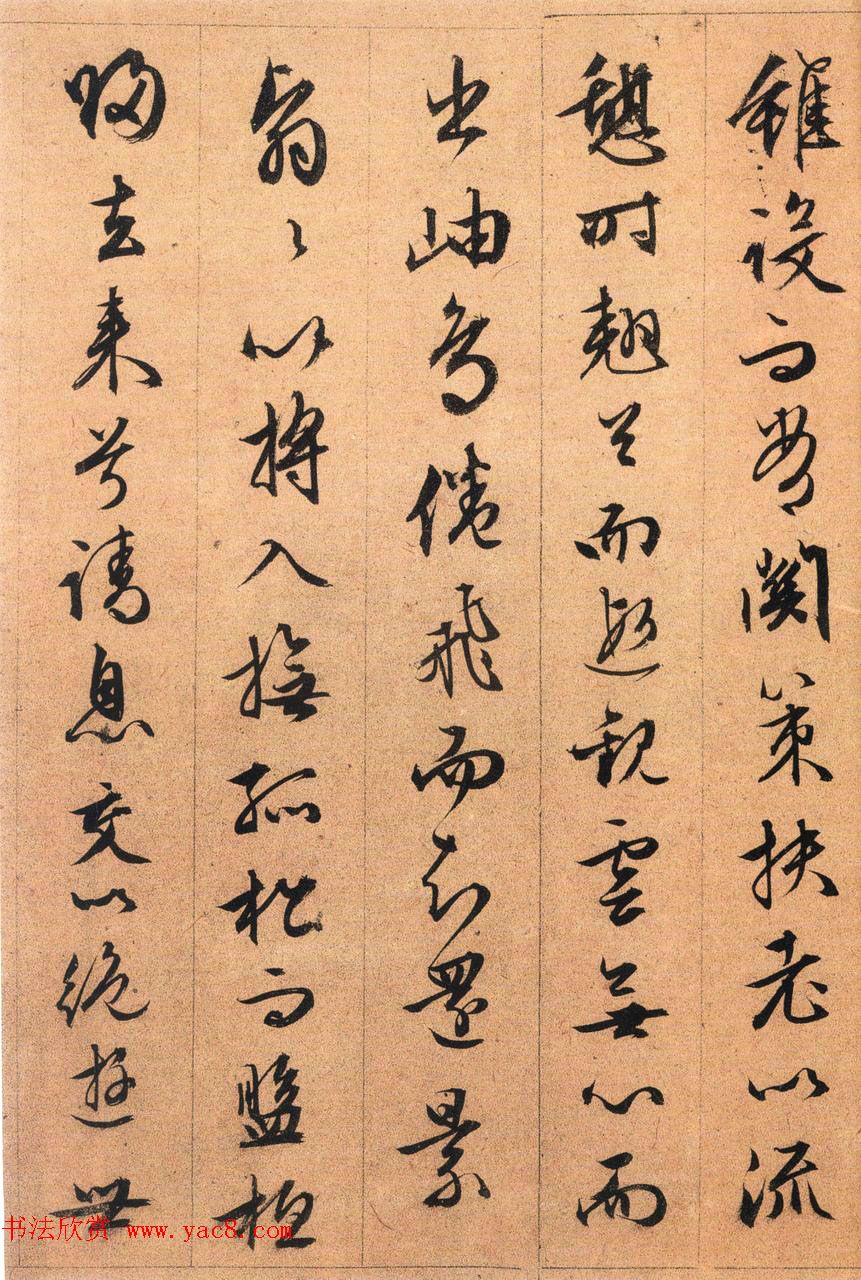 雖設而常關策扶老以流
憩時翹首而遐觀雲無心而
出岫鳥倦飛而知還景
翳〻以將入撫孤松而盤桓
歸去來兮請息交以絕遊世
书法欣赏 www.yac8.com